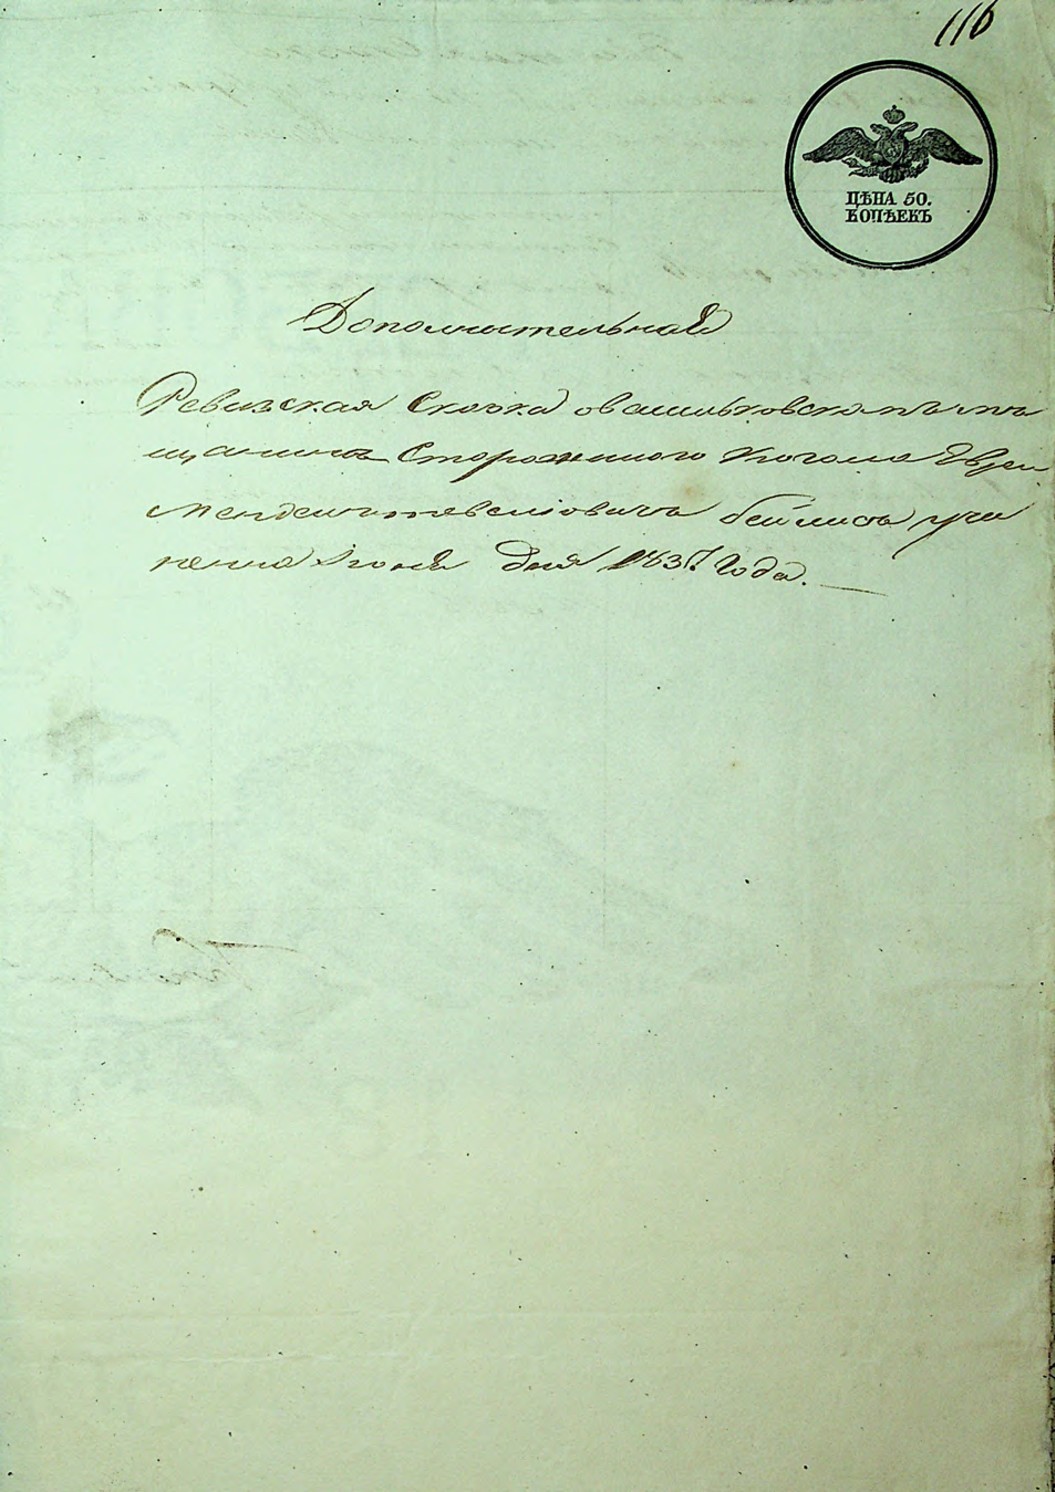 116
ЦѢНА 50.
КОПѢЕКЪ
Дополнительная
Ревизская Сказка овасильковскомъ мѣ
щанинѣ Стороженского Кагала Евреи
Мендель Бейлисѣ учи
ненна Июня дня 1837 Года.